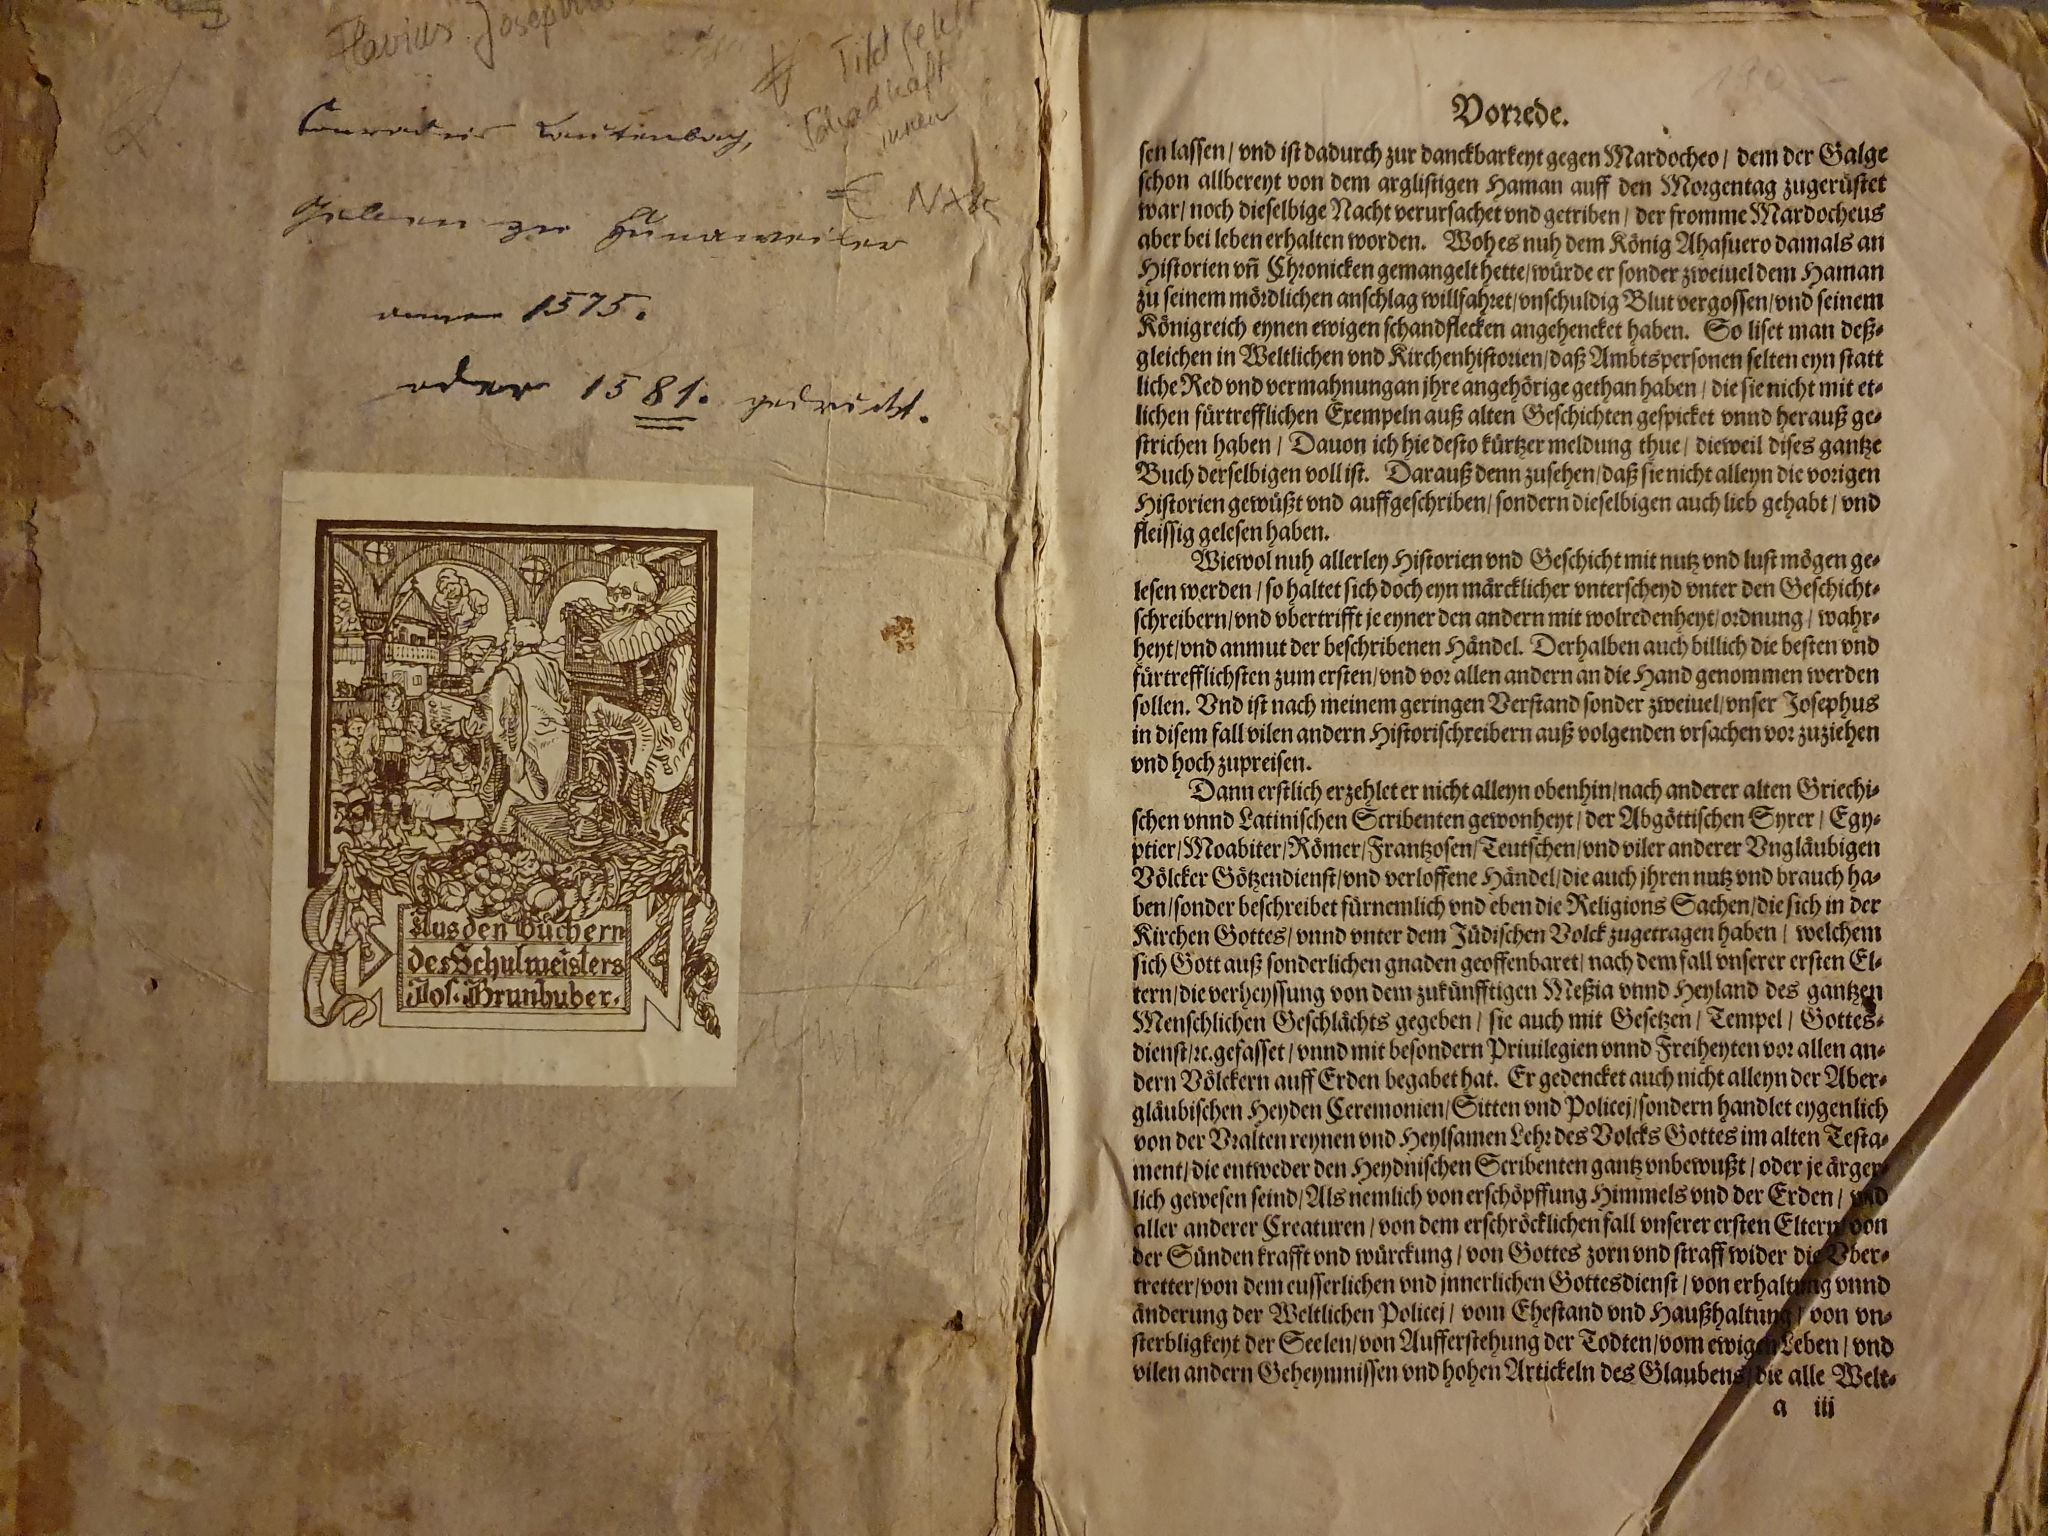 Flavius Josephus
Titel fehlt
Conradus Lautenbach,
zu Hunaweiler
anno 1575.
oder 1581. gedruckt.
Aus den Büchern
des Schulmeisters
Jos. Brunhuber.
Vorrede.
sen lassen / vnd ist dadurch zur danckbarkeyt gegen Mardocheo / dem der Galge
schon allbereyt von dem arglistigen Haman auff den Morgentag zugerüstet
war / noch dieselbige Nacht verursachet vnd getriben / der fromme Mardocheus
aber bei leben erhalten worden. Woh es nuh dem König Ahasuero damals an
Historien vñ Chronicken gemangelt hette / würde er sonder zweiuel dem Haman
zu seinem mördlichen anschlag willfahret / vnschuldig Blut vergossen / vnd seinem
Königreich eynen ewigen schandflecken angehencket haben. So liset man deß-
gleichen in Weltlichen vnd Kirchenhistorien / daß Ambtspersonen selten eyn statt
liche Red vnd vermahnung an jhre angehörige gethan haben / die sie nicht mit et-
lichen fürtrefflichen Exempeln auß alten Geschichten gespicket vnnd herauß ge-
strichen haben / Dauon ich hie desto kürtzer meldung thue / dieweil dises gantze
Buch derselbigen voll ist. Darauß denn zusehen / daß sie nicht alleyn die vorigen
Historien gewüßt vnd auffgeschriben / sondern dieselbigen auch lieb gehabt / vnd
fleissig gelesen haben.
Wiewol nuh allerley Historien vnd Geschicht mit nutz vnd lust mögen ge-
lesen werden / so haltet sich doch eyn märcklicher vnterscheyd vnter den Geschicht-
schreibern / vnd vbertrifft je eyner den andern mit wolredenheyt / ordnung / wahr-
heyt / vnd anmut der beschribenen Händel. Derhalben auch billich die besten vnd
fürtrefflichsten zum ersten / vnd vor allen andern an die Hand genommen werden
sollen. Vnd ist nach meinem geringen Verstand sonder zweiuel / vnser Josephus
in disem fall vilen andern Historischreibern auß volgenden vrsachen vor zuziehen
vnd hoch zupreisen.
Dann erstlich erzehlet er nicht alleyn obenhin / nach anderer alten Griechi-
schen vnnd Latinischen Scribenten gewonheyt / der Abgöttischen Syrer / Egy-
ptier / Moabiter / Römer / Frantzosen / Teutschen / vnd viler anderer Vngläubigen
Völcker Götzendienst / vnd verloffene Händel / die auch jhren nutz vnd brauch ha-
ben / sonder beschreibet fürnemlich vnd eben die Religions Sachen / die sich in der
Kirchen Gottes / vnnd vnter dem Jüdischen Volck zugetragen haben / welchem
sich Gott auß sonderlichen gnaden geoffenbaret / nach dem fall vnserer ersten El-
tern / die verheyssung von dem zukünfftigen Meßia vnnd Heyland des gantzen
Menschlichen Geschlächts gegeben / sie auch mit Gesetzen / Tempel / Gottes-
dienst / ꝛc. gefasset / vnnd mit besondern Priuilegien vnnd Freiheyten vor allen an-
dern Völckern auff Erden begabet hat. Er gedencket auch nicht alleyn der Aber-
gläubischen Heyden Ceremonien / Sitten vnd Policej / sondern handlet eygenlich
von der Vralten reynen vnd Heylsamen Lehr des Volcks Gottes im alten Testa-
ment / die entweder den Heydnischen Scribenten gantz vnbewußt / oder je ärger-
lich gewesen seind / Als nemlich von erschöpffung Himmels vnd der Erden / vnd
aller anderer Creaturen / von dem erschröcklichen fall vnserer ersten Eltern / von
der Sünden krafft vnd würckung / von Gottes zorn vnd straff wider die Vber-
tretter / von dem eusserlichen vnd jnnerlichen Gottesdienst / von erhaltung vnnd
änderung der Weltlichen Policej / vom Ehestand vnd Haußhaltung / von vn-
sterbligkeyt der Seelen / von Aufferstehung der Todten / vom ewigen Leben / vnd
vilen andern Geheymnissen vnd hohen Artickeln des Glaubens / die alle Welt-
a iij